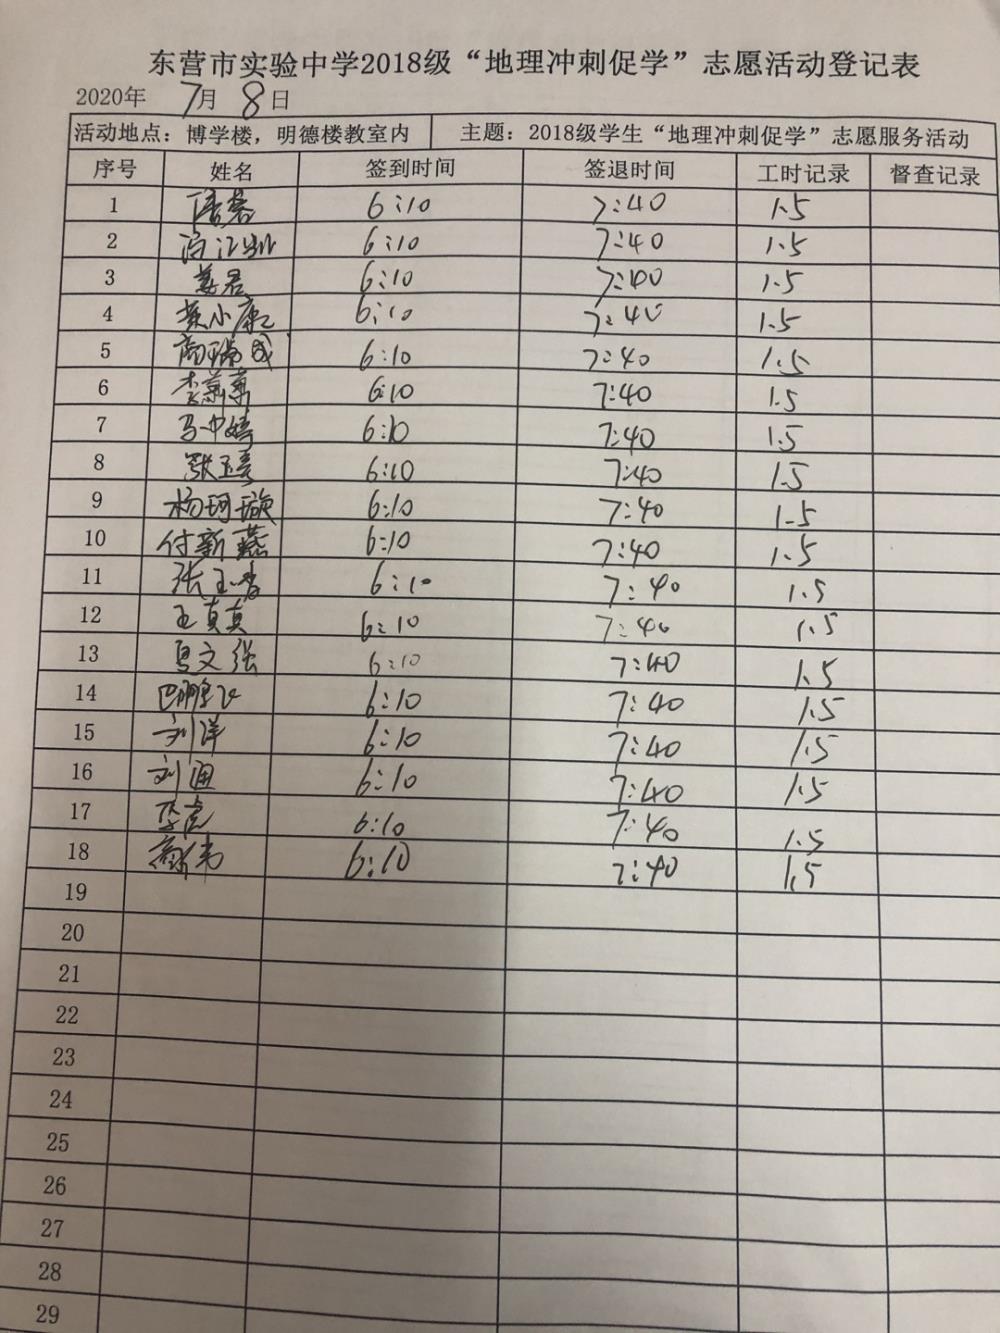 东营市实验中学2018级“地理冲刺促学”志愿活动登记表
2020年 7月 8日
活动地点：博学楼，明德楼教室内 主题：2018级学生“地理冲刺促学”志愿服务活动
序号 姓名 签到时间 签退时间 工时记录 督查记录
1 6:10 7:40 1.5
2 6:10 7:40 1.5
3 姜君 6:10 7:40 1.5
4 小康 6:10 7:40 1.5
5 6:10 7:40 1.5
6 李萧萧 6:10 7:40 1.5
7 马中 6:10 7:40 1.5
8 张玉 6:10 7:40 1.5
9 杨珂璇 6:10 7:40 1.5
10 付新燕 6:10 7:40 1.5
11 张玉香 6:10 7:40 1.5
12 王真真 6:10 7:40 1.5
13 文张 6:10 7:40 1.5
14 巴鹏飞 6:10 7:40 1.5
15 刘洋 6:10 7:40 1.5
16 刘通 6:10 7:40 1.5
17 李虎 6:10 7:40 1.5
18 6:10 7:40 1.5
19
20
21
22
23
24
25
26
27
28
29